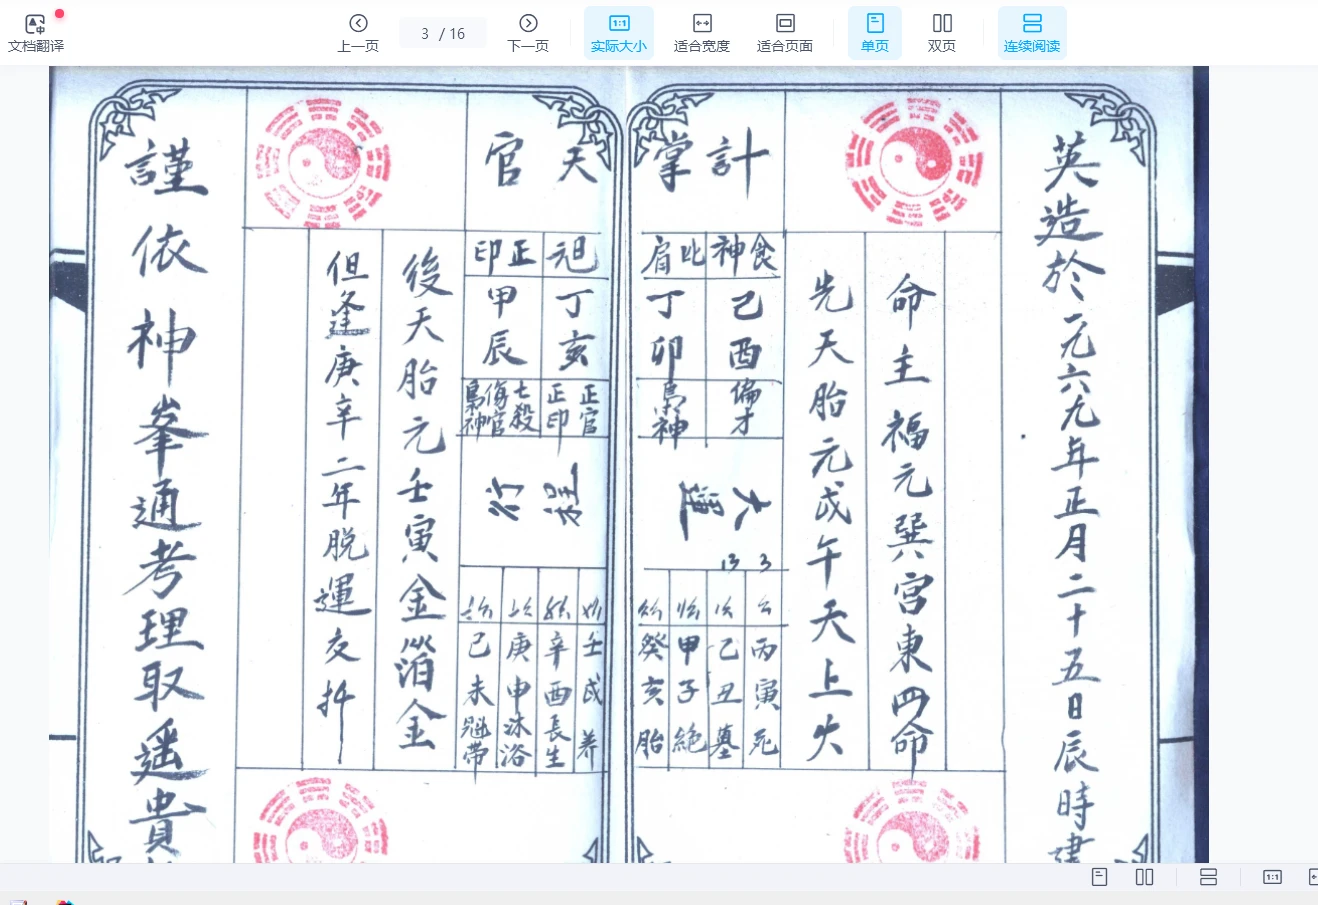 文档翻译
上一页
3 / 16
下一页
1:1
实际大小
适合宽度
适合页面
单页
双页
连续阅读
英造於一九六九年正月二十五日辰時建
計掌
命主福元巽宮東四命
先天胎元戊午天上火
食神
己酉
偏才
比肩
丁卯
梟神
大運
丙寅死
乙丑墓
甲子絕
癸亥胎
天官
元旦
丁亥
正官
正印
正印
甲辰
七殺
傷官
梟神
程行
壬戌养
辛酉長生
庚申沐浴
己未冠带
後天胎元壬寅金箔金
但逢庚辛二年脱運交抍
謹依神峯通考理取遥貴
1:1